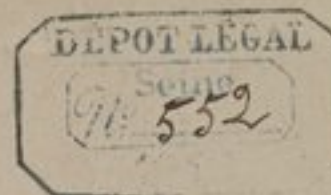 DÉPOT LÉGAL
Seine
No 552